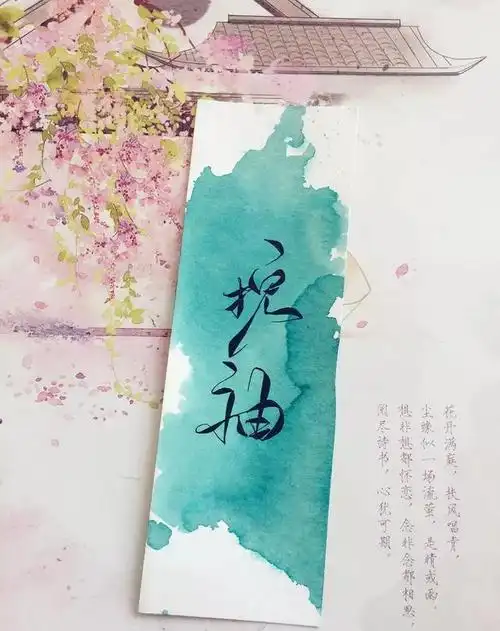 挽袖
花开满庭，扶风唱
尘缘似一场流萤，是晴或雨，
想非想都怀恋，念非念都相思，
阅尽诗书，心犹可期。